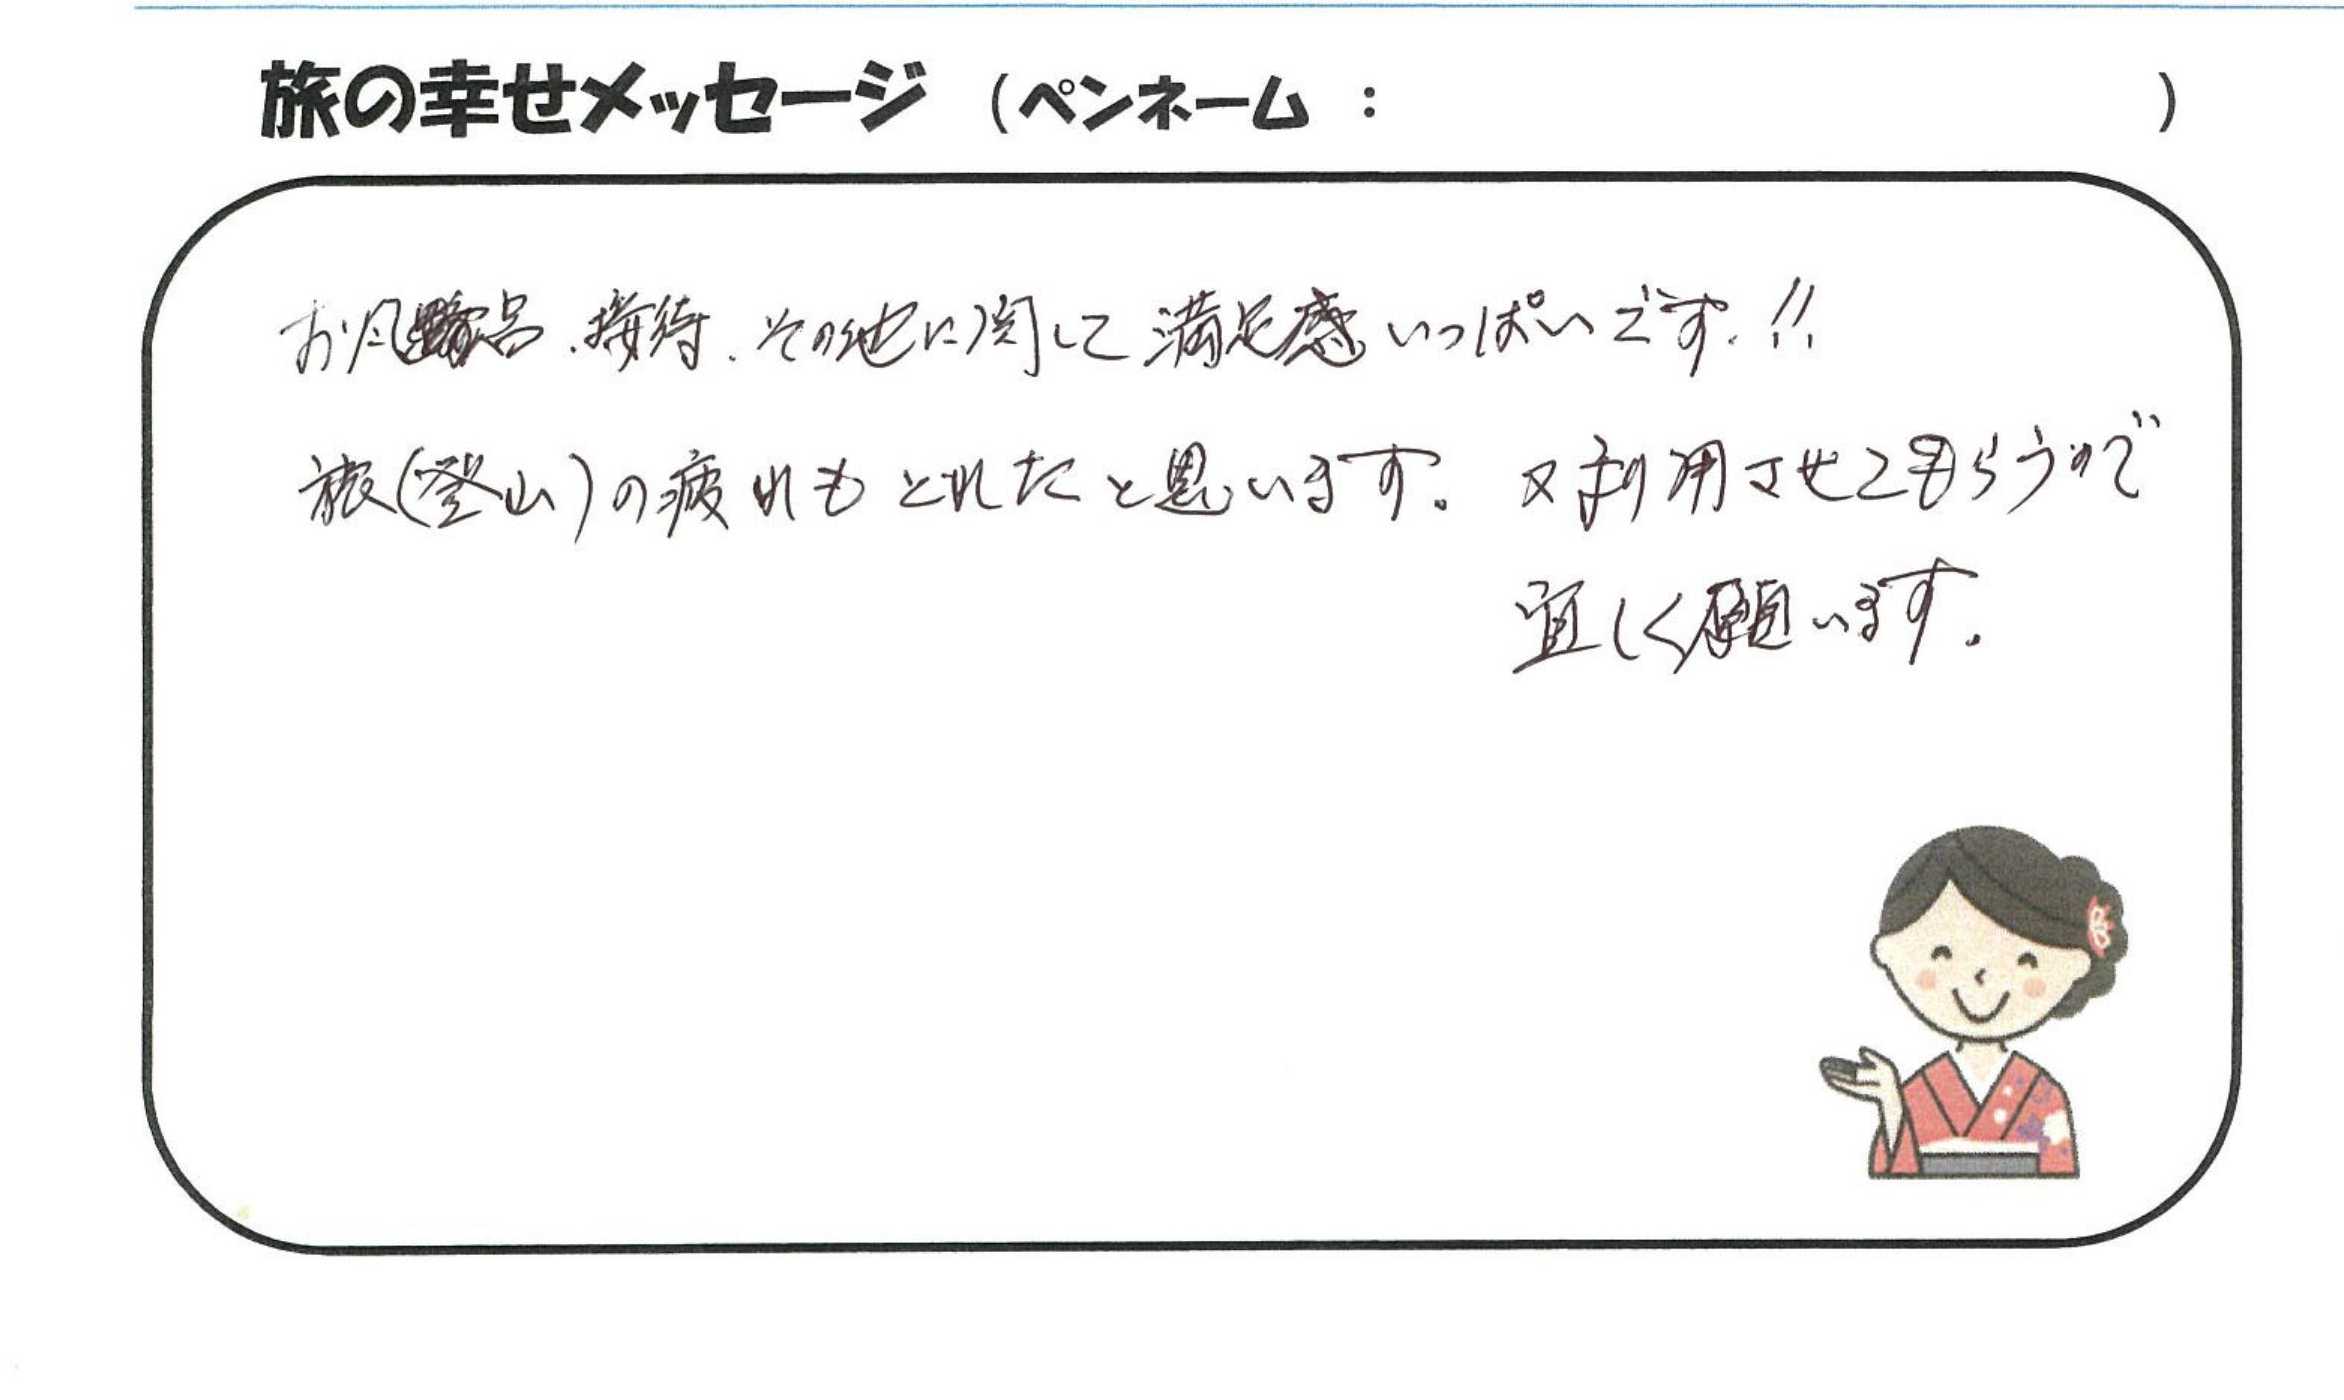 旅の幸せメッセージ (ペンネーム : )
お風呂、接待、その他に関して満足感いっぱいです.!!
旅(登山)の疲れもとれたと思います。又利用させてもらうので
宜しく願います。